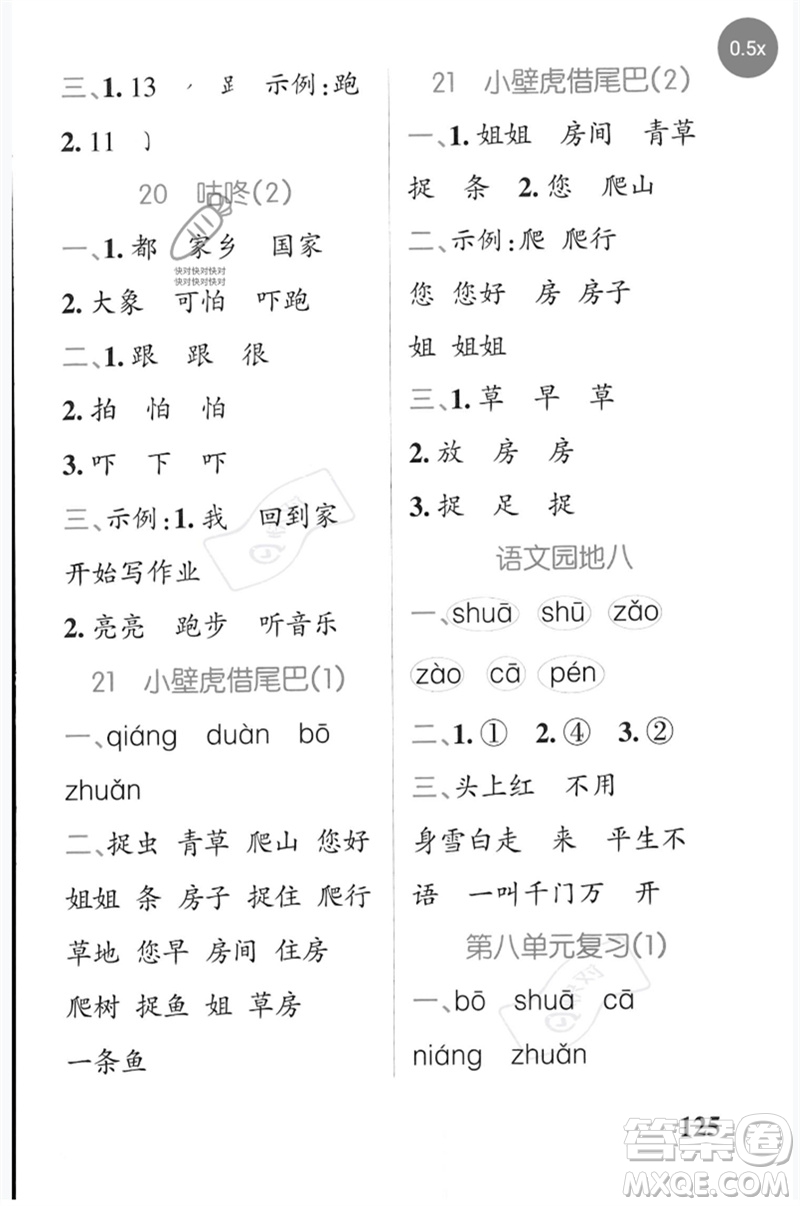 0.5x
三、1. 13 ㇒ 𧾷 示例:跑
2. 11 ㇁
20 咕咚(2)
快对快对快对
快对快对快对
一、1. 都 家乡 国家
2. 大象 可怕 吓跑
二、1. 跟 跟 很
2. 拍 怕 怕
3. 吓 下 吓
三、示例:1. 我 回到家
开始写作业
2. 亮亮 跑步 听音乐
21 小壁虎借尾巴(1)
一、qiáng duàn bō
zhuǎn
二、捉虫 青草 爬山 您好
姐姐 条 房子 捉住 爬行
草地 您早 房间 住房
爬树 捉鱼 姐 草房
一条鱼
21 小壁虎借尾巴(2)
一、1. 姐姐 房间 青草
捉 条 2. 您 爬山
二、示例:爬 爬行
您 您好 房 房子
姐 姐姐
三、1. 草 早 草
2. 放 房 房
3. 捉 足 捉
语文园地八
一、shuā shū zǎo
zào cā pén
二、1. ① 2. ④ 3. ②
三、头上红 不用
身雪白走 来 平生不
语 一叫千门万 开
第八单元复习(1)
一、bō shuā cā
niáng zhuǎn
125
答案圈
MXQE.COM